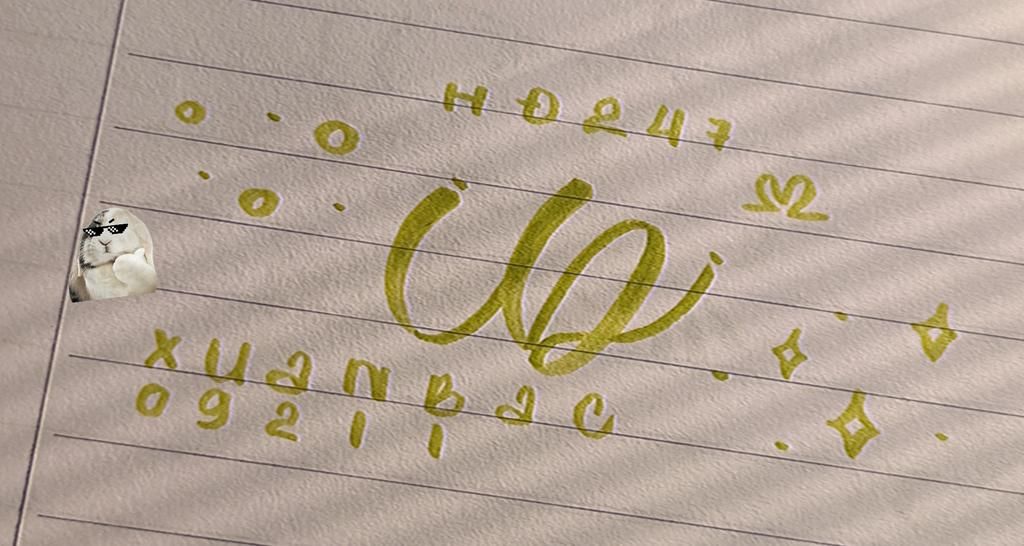 H Đ 2 4 7
X U a N B a C
0 9 2 1 1